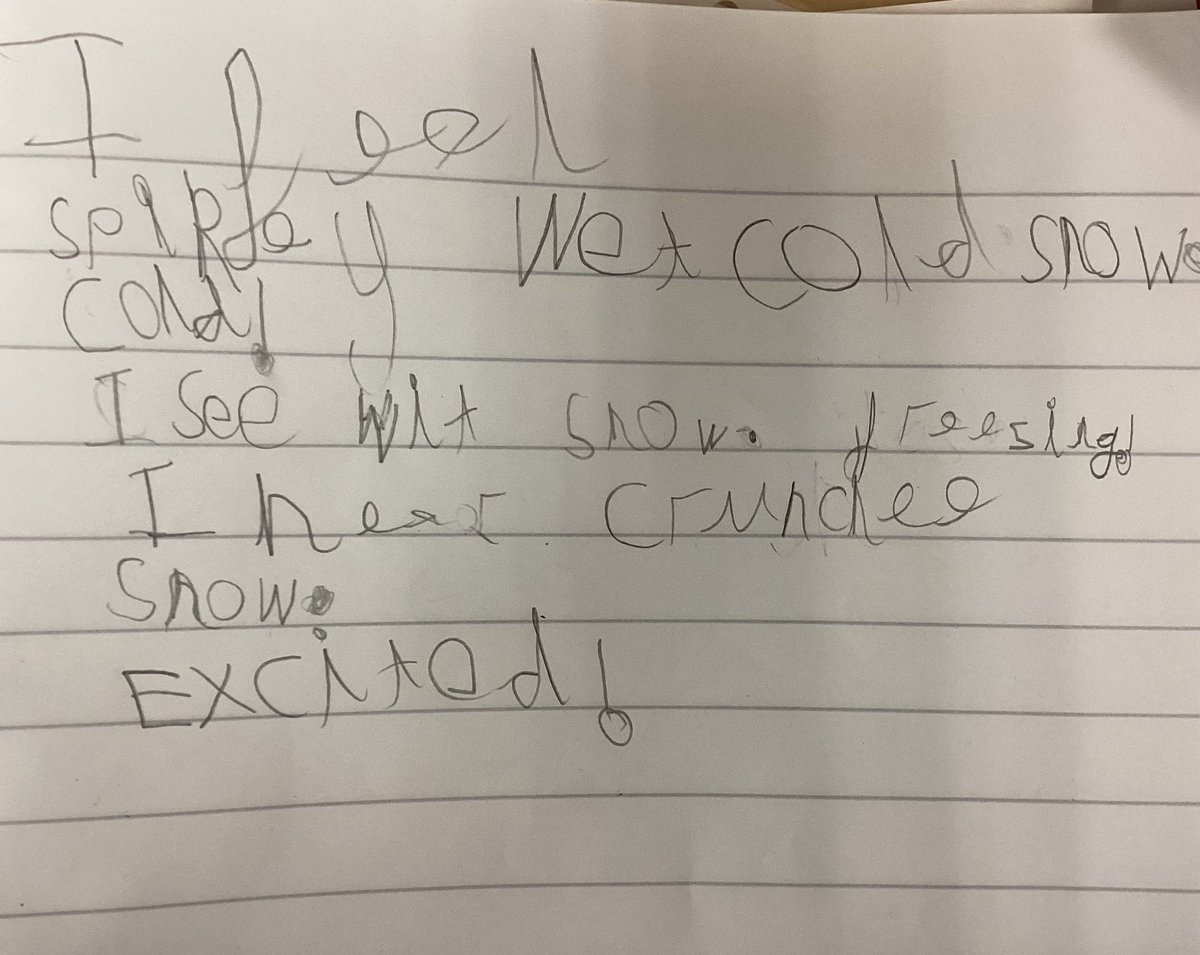 I feel
spirkley wet cold snow.
cold!
I see wit snow. freesing!
I hear. crunchee
snow.
EXCited!